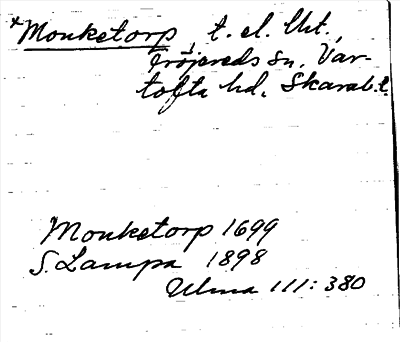 *Monketorp, t. el. lht.,
Fröjereds sn, Var-
tofta hd, Skarab. l.
Monketorp 1699
S. Lampa 1898
Ulma 111: 380